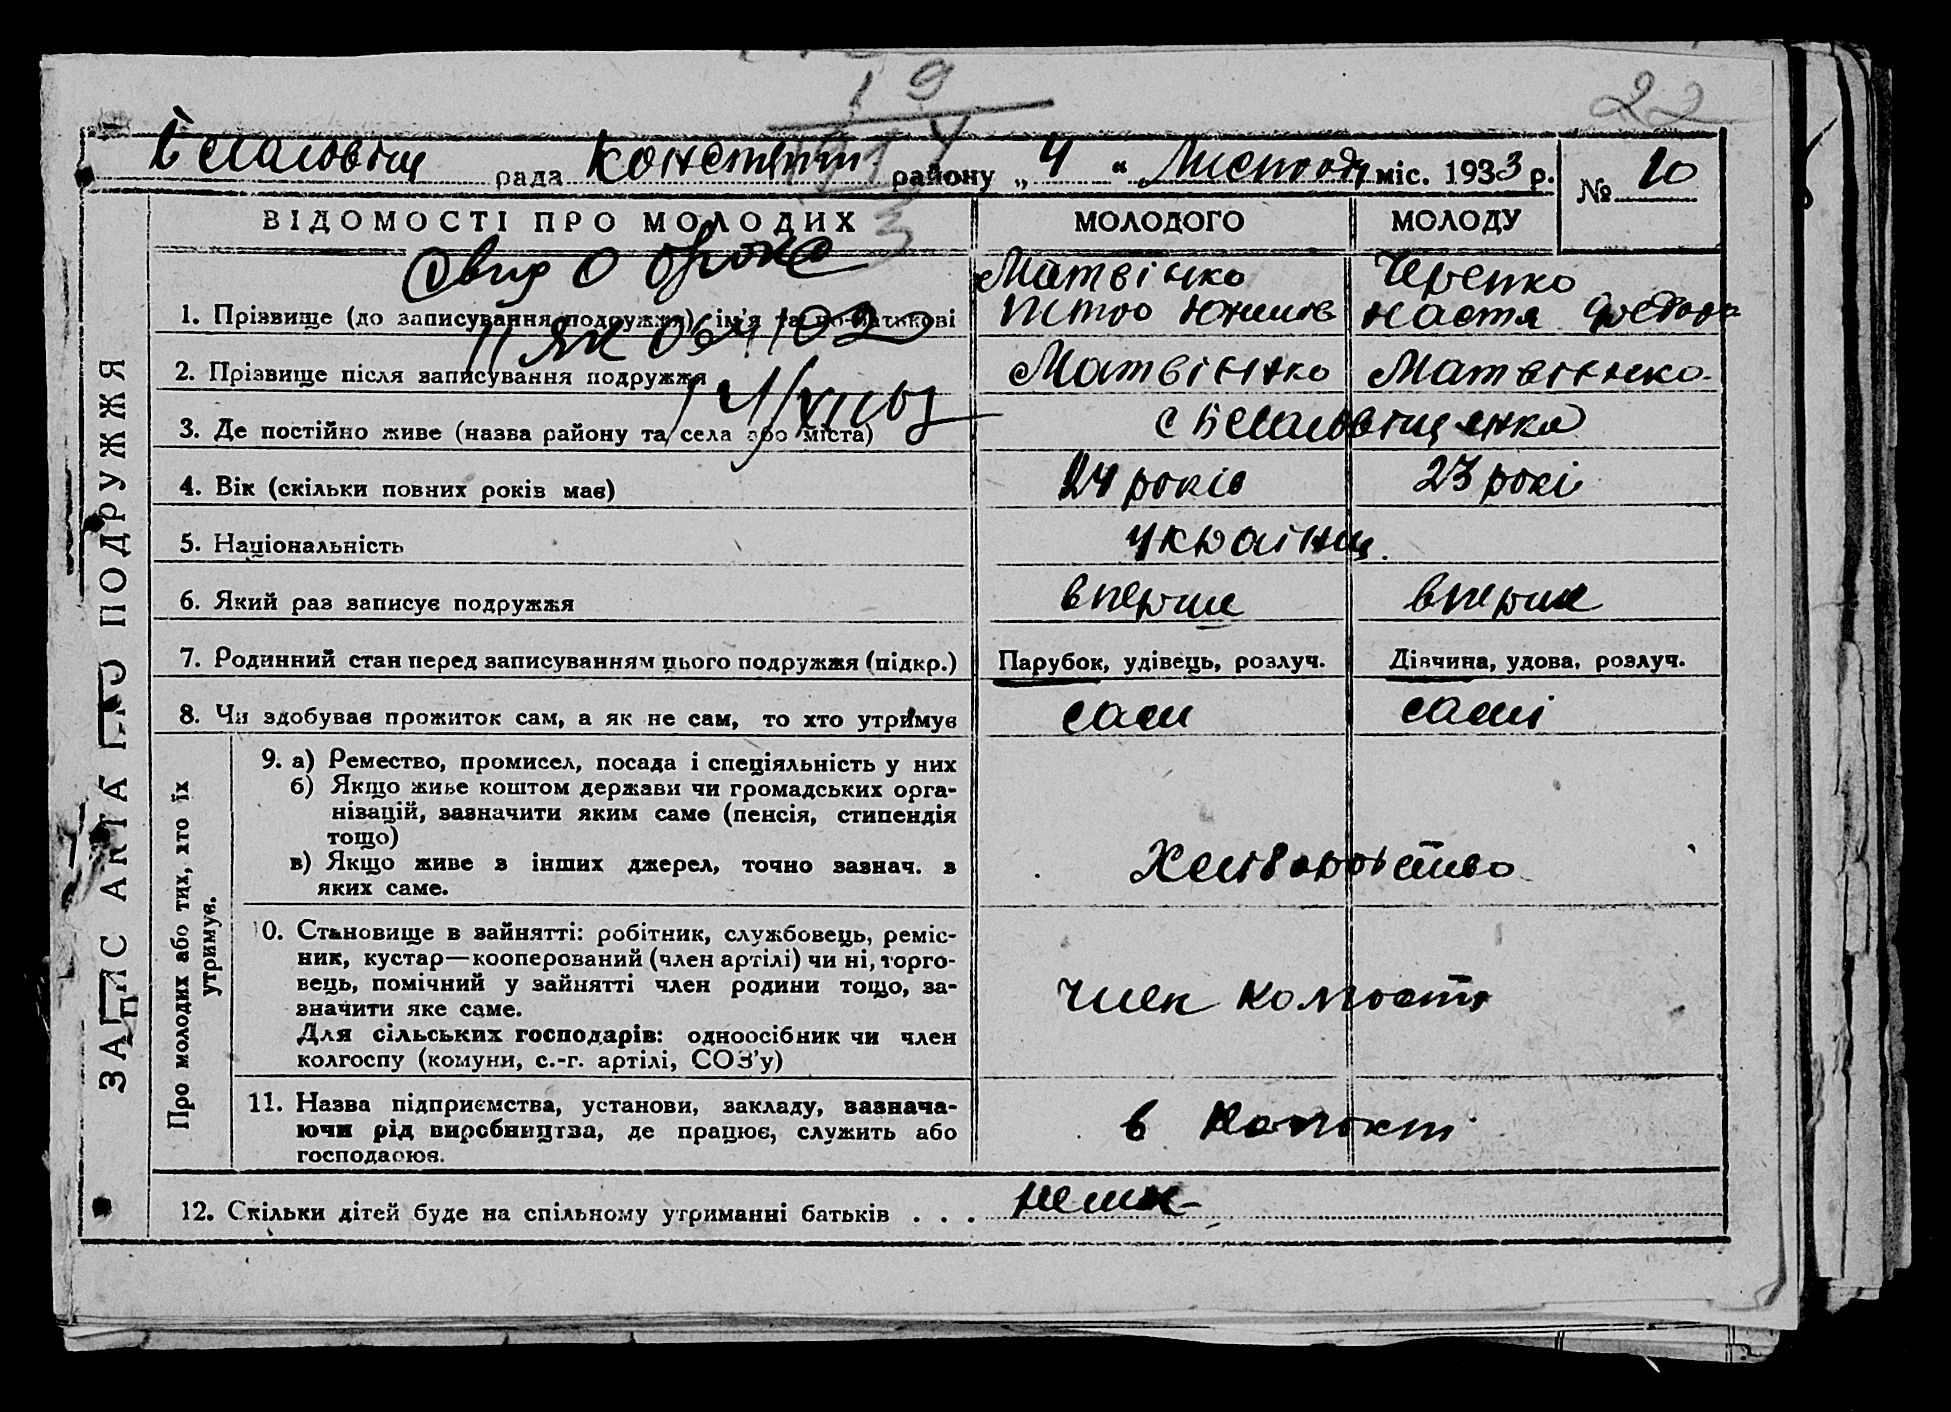 19
22
рада Констянт району „4“ Листопад міс. 1933 р. № 10
ВІДОМОСТІ ПРО МОЛОДИХ МОЛОДОГО МОЛОДУ
Свид о браке
Матвінко Черепко
1. Прізвище (до записування подружжя), ім'я та по-батькові Петро Настя
II ЯК
2. Прізвище після записування подружжя Матвіінко Матвіенко
3. Де постійно живе (назва району та села або міста)
4. Вік (скільки повних років має) 24 років 23 рокі
5. Національність україниц
6. Який раз записує подружжя вперше вперше
7. Родинний стан перед записуванням цього подружжя (підкр.) Парубок, удівець, розлуч. Дівчина, удова, розлуч.
8. Чи здобуває прожиток сам, а як не сам, то хто утримує сам самі
9. а) Ремество, промисел, посада і спеціяльність у них
б) Якщо живе коштом держави чи громадських орга-
нізацій, зазначити яким саме (пенсія, стипендія
тощо)
в) Якщо живе з інших джерел, точно зазнач. з
яких саме.
Хліборобство
10. Становище в зайнятті: робітник, службовець, реміс-
ник, кустар—кооперований (член артілі) чи ні, торго-
вець, помічний у зайнятті член родини тощо, за-
значити яке саме.
Для сільських господарів: одноосібник чи член
колгоспу (комуни, с.-г. артілі, СОЗ'у)
член
11. Назва підприємства, установи, закладу, зазнача-
ючи рід виробництва, де працює, служить або
господарює.
в
12. Скільки дітей буде на спільному утриманні батьків . . . нема
ЗАПИС АКТА ПРО ПОДРУЖЖЯ
Про молодих або тих, хто їх
утримує.